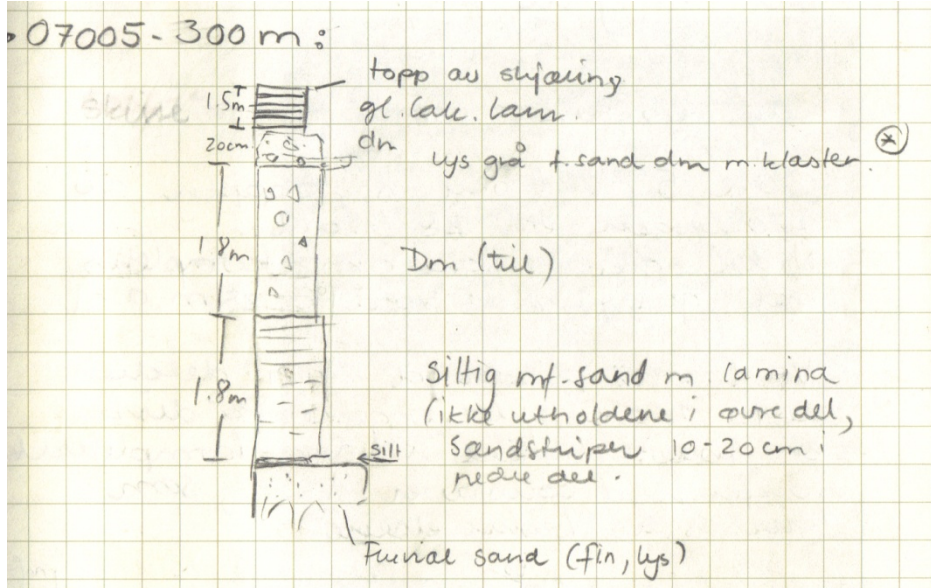 07005-300 m:
topp av skjæring
1.5m
gl. lak. lam.
20cm
dm
lys grå f. sand dm m. klaster.
1.8m
Dm (till)
1.8m
Siltig mf-sand m lamina
(ikke utholdene i øvre del,
Sandstriper 10-20cm i
nedre del.
silt
Fluvial sand (fin, lys)